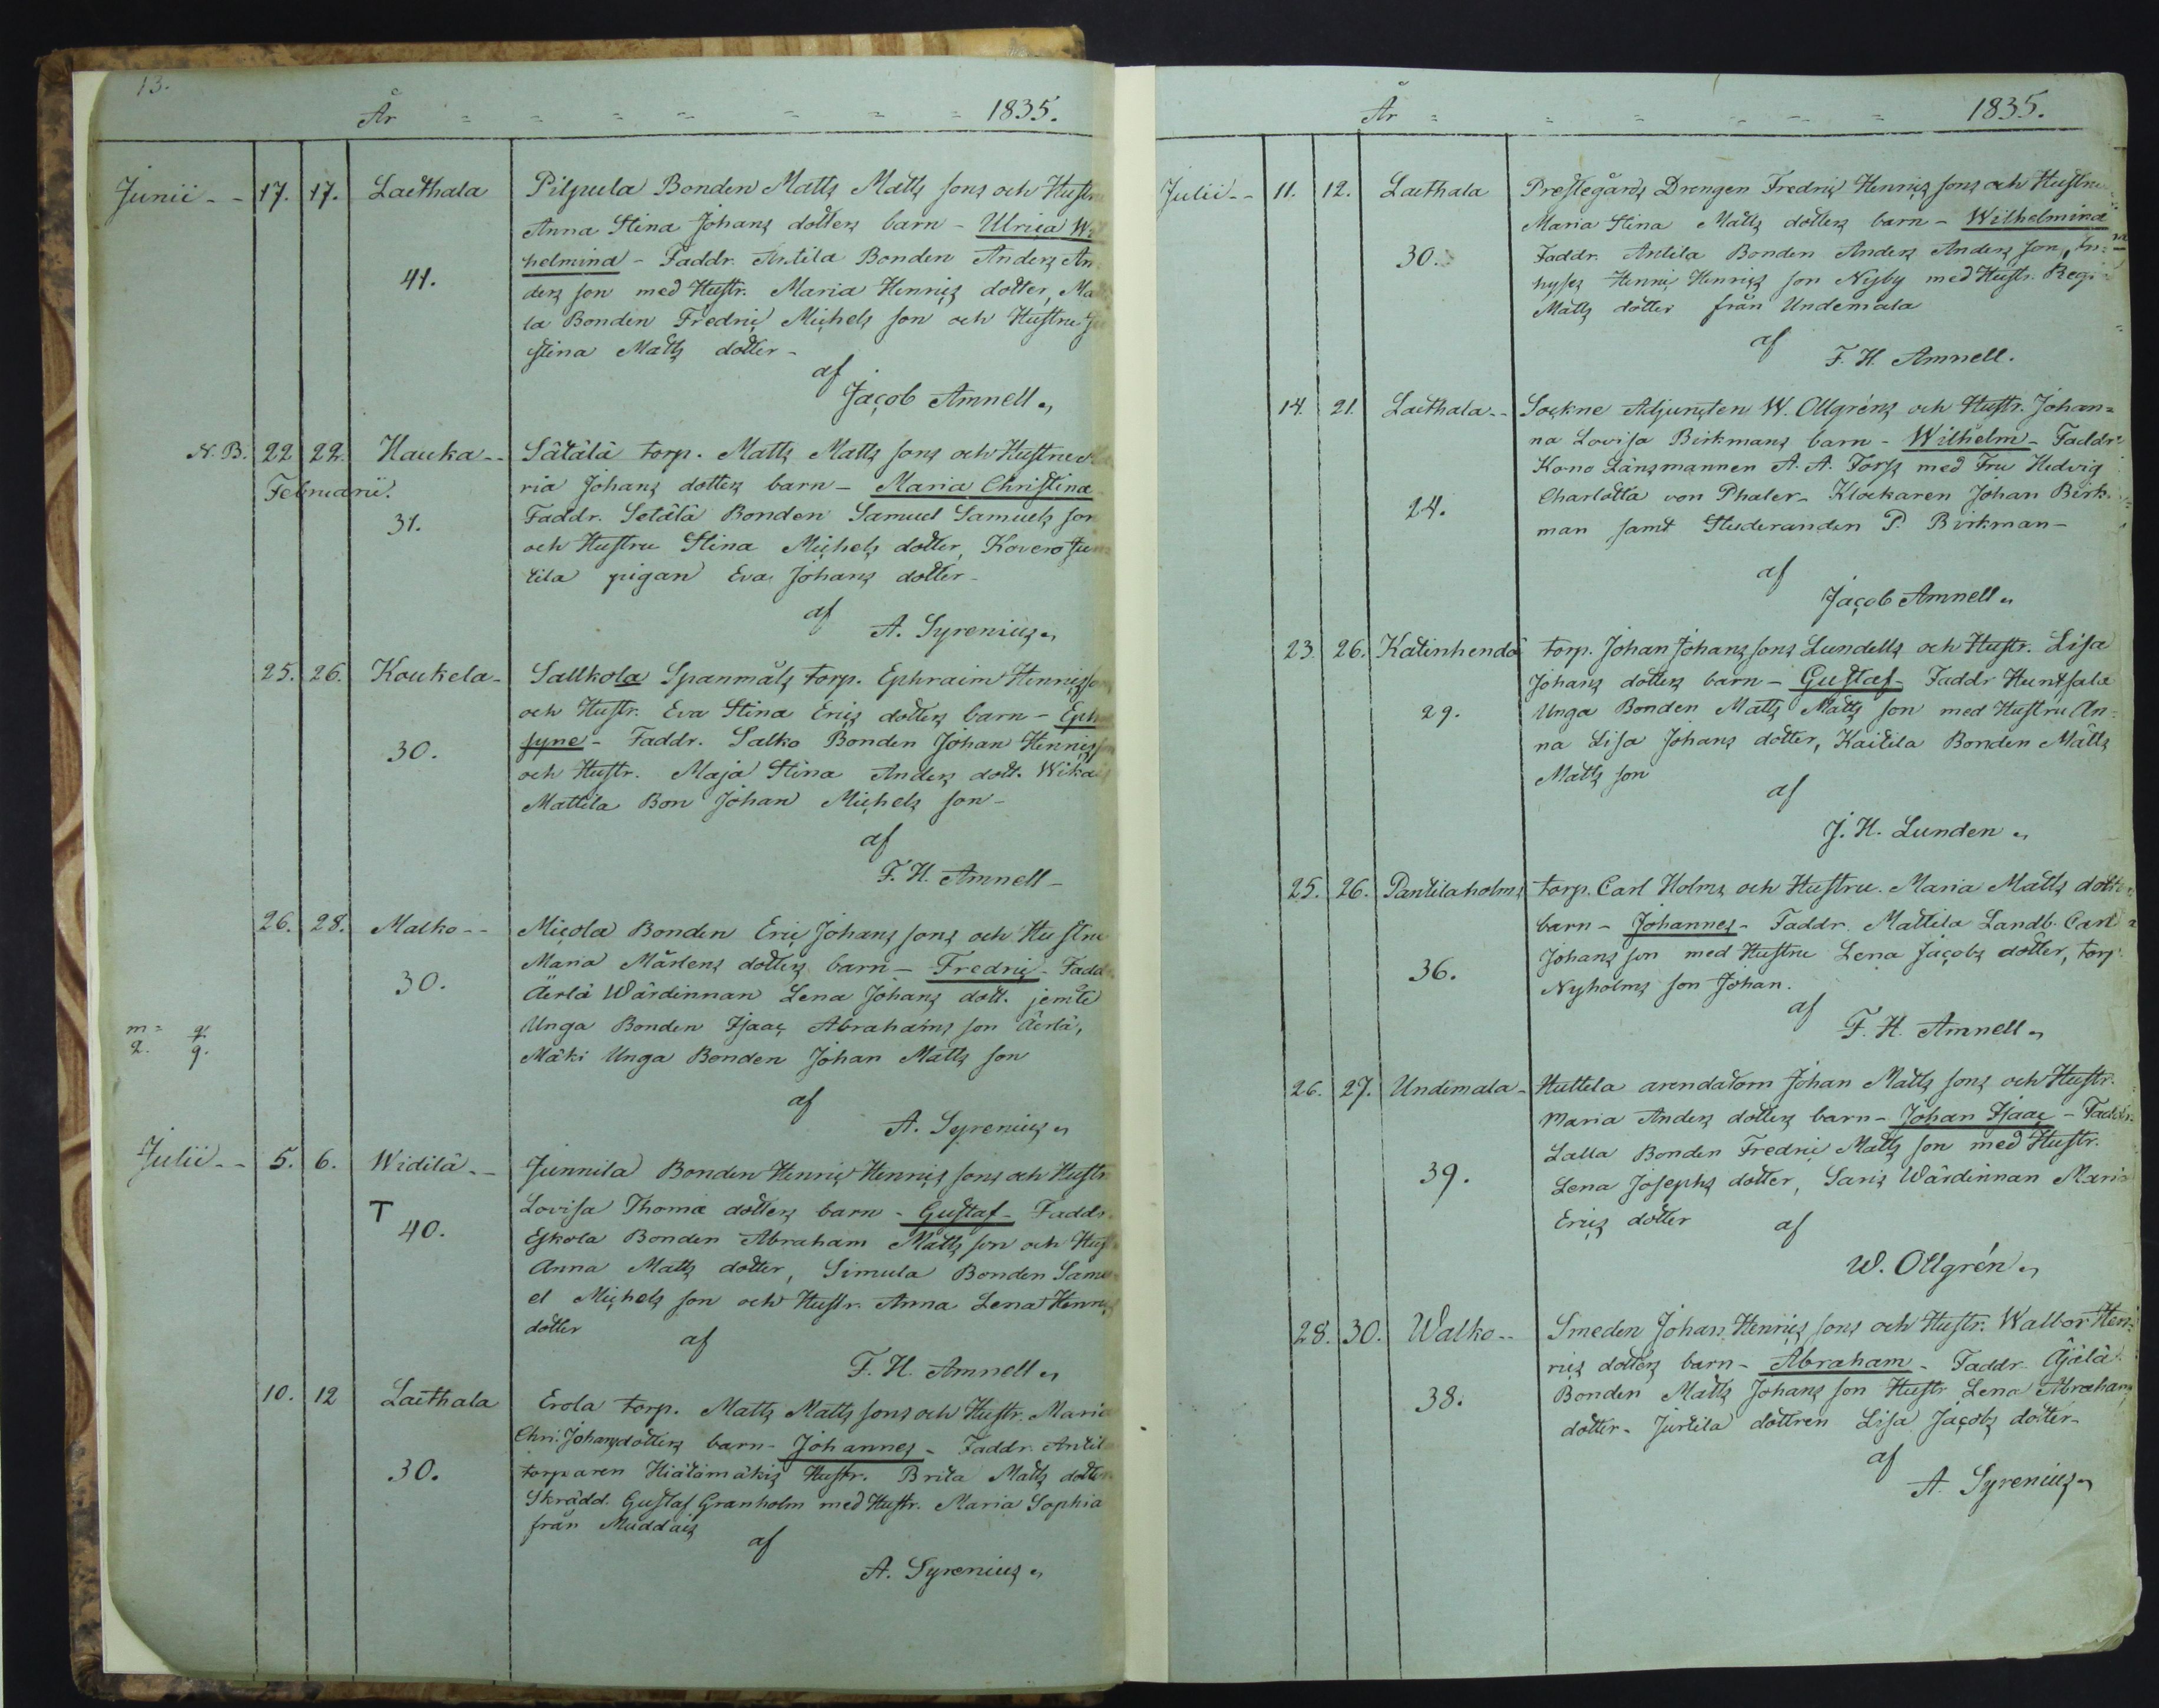 13.
År - - - - - - - 1835.
Junii - - 17. 17. Lacthala Pilpula Bonden Matts Matts sons och Hustru
Anna Stina Johans dotters barn - Ulrica Wil
41. helmina - Faddr. Antila Bonden Anders An
ders son med Hustr. Maria Henrics dotter,
la Bonden Fredric Michels son och Hustru
stina Matts dotter -
af
Jacob Amnell
N. B. 22 22. Hauka - - Sätälä torp. Matts Matts sons och Hustru Ma
Februarii. ria Johans dotters barn - Maria Christina
31. Faddr. Setälä Bonden Samuel Samuels son
och Hustru Stina Michels dotter, Kovero
tila pigan Eva Johans dotter -
af
A. Syrenius
25. 26. Koukela - Sallkola Spanmåls torp. Ephraim Henrics sons
och Hustr. Eva Stina Erics dotters barn - Eph
30. syne - Faddr. Salko Bonden Johan Henrics son
och Hustr. Maja Stina Anders dott. Wikais
Mattila Bon Johan Michels son -
af
F. H. Amnell -
26. 28. Malko - - Micola Bonden Eric Johans sons och Hustru
Maria Mårtens dotters barn - Fredric - Faddr.
30. Äerlä Wärdinnan Lena Johans dott. jemte
Unga Bonden Isaac Abrahams son Äerlä,
Mäki Unga Bonden Johan Matts son
m = q.
2. 9.
af
A. Syrenius
Julii - - 5. 6. Widilä - - Junnila Bonden Henric Henrics sons och Hustr
Lovisa Thomæ dotters barn - Gustaf - Faddr.
T 40. Eskola Bonden Abraham Matts son och Hust
Anna Matts dotter, Simula Bonden Samu
el Michels son och Hustr. Anna Lena Henrics
dotter
af
F. H. Amnell
10. 12 Lacthala Erola torp. Matts Matts sons och Hustr. Maria
Chri. Johansdotters barn - Johannes - Faddr. Antila
30. torparen Hiätämäkis Hustr. Brita Matts dotter
Skrädd. Gustaf Granholm med Hustr. Maria Sophia
från Muddais
af
A. Syrenius
År - - - - - - 1835.
Julii - - 11. 12. Lacthala Prestegårds Drengen Fredric Henrics sons och Hustru
Maria Stina Matts dotters barn - Wilhelmina
30. Faddr. Antila Bonden Anders Anders son, In=
hyses Henric Henrics son Nyby med Hustr. Regi
Matts dotter från Undemala
af
F. H. Amnell.
14. 21. Lacthala - - Sockne Adjuncten W. Ollgréns och Hustr. Johan=
na Lovisa Birkmans barn - Wilhelm - Faddr.
Kono Länsmannen A. A. Forss med Fru Hedvig
24. Charlotta von Phaler - Klockaren Johan Birk
man samt Studeranden P. Birkman -
af
Jacob Amnell
23. 26. Katinhendå torp. Johan Johans sons Lundells och Hustr. Lisa
Johans dotters barn - Gustaf - Faddr Huntsala
29. Unga Bonden Matts Matts son med Hustru An=
na Lisa Johans dotter, Kaitila Bonden Matts
Matts son
af
J. H. Lunden
25. 26. Pantilaholms torp. Carl Holms och Hustru. Maria Matts dotters
barn - Johannes - Faddr. Mattila Landb. Carl
36. Johans son med Hustru Lena Jacobs dotter, torp.
Nyholms son Johan.
af
F. H. Amnell
26. 27. Undemala - Huttila arendatorn Johan Matts sons och Hustr.
Maria Anders dotters barn - Johan Isaac - Faddr.
Lalla Bonden Fredric Matts son med Hustr.
39. Lena Josephs dotter, Saris Wärdinnan Maria
Erics dotter
af
W. Ollgrén
28. 30. Walko - - Smeden Johan Henrics sons och Hustr. Walbor Hen=
rics dotters barn - Abraham - Faddr. Äjälä
38. Bonden Matts Johans son Hustr Lena Abrahams
dotter - Jurtila dottren Lisa Jacobs dotter -
af
A. Syrenius